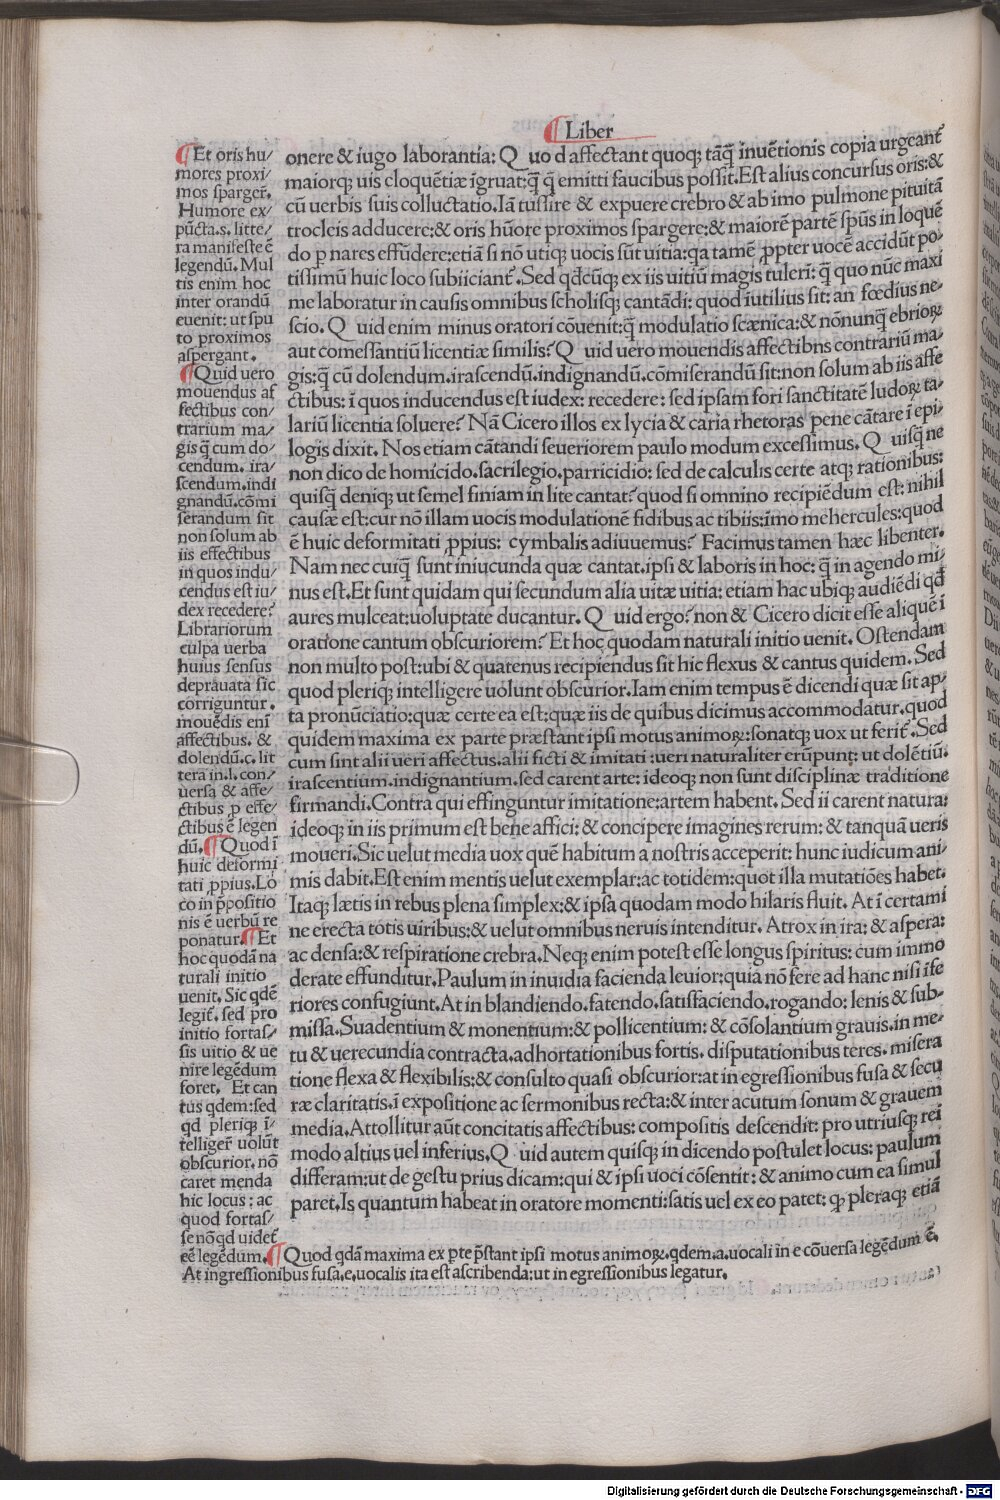 ¶Liber
¶Et oris hu/
mores proxi/
mos spargeř.
Humore ex/
pūcta.s. litte/
ra manifeste ē
legendū. Mul
tis enim hoc
inter orandū
euenit: ut spu
to proximos
aspergant.
¶Quid uero
mouendus af
fectibus con/
trarium ma/
gis q̄ cum do/
cendum. ira/
scendum.indi
gnandū.cōmi
serandum sit
non solum ab
iis effectibus
in quos indu/
cendus est iu/
dex recedere?
Librariorum
culpa uerba
huius sensus
deprauata sic
corriguntur.
mouēdis eni
affectibus. &
dolendū.c. lit
tera in.l. con/
uersa & affe/
ctibus p effe/
ctibus ē legen
dū. ¶Quod ī
huic deformi
tati ꝓpius. Lo
co in p̄positio
nis ē uerbū re
ponatur. ¶Et
hoc quodā na
turali initio
uenit. Sic qdē
legit̄. sed pro
initio fortas/
sis uitio & ue
nire legēdum
foret. Et can
tus qdem:sed
qd pleriqꝫ ī/
telliger̄ uolūt
obscurior. nō
caret menda
hic locus: ac
quod fortas/
se nōqd uidet̄
eē legēdum.
onere & iugo laborantia: Q uo d affectant quoqꝫ tāq̄ inuētionis copia urgeant̄
maiorqꝫ uis eloquētiæ īgruat:q̄ q̄ emitti faucibus possit. Est alius concursus oris:&
cū uerbis suis colluctatio. Iā tussire & expuere crebro & ab imo pulmone pituitā
trocleis adducere:& oris hūore proximos spargere:& maiorē partē sp̄us in loquē
do p nares effūdere:etiā si nō utiqꝫ uocis sūt uitia:qa tamē ꝓpter uocē accidūt po/
tissimū huic loco subiiciant̄. Sed qdcūqꝫ ex iis uitiū magis tulerī: q̄ quo nūc maxi
me laboratur in causis omnibus scholisqꝫ cantādi: quod īutilius sit: an fœdius ne-
scio. Q uid enim minus oratori cōuenit:q̄ modulatio scænica:& nōnunq̄ ebrioꝝ
aut comessantiū licentiæ similis? Q uid uero mouendis affectibns contrariū ma/
gis:q̄ cū dolendum.irascendū.indignandū.cōmiserandū sit:non solum ab iis affe
ctibus: ī quos inducendus est iudex: recedere: sed ipsam fori sanctitatē ludoꝝ ta/
lariū licentia soluere? Nā Cicero illos ex lycia & caria rhetoras pene cātare ī epi/
logis dixit. Nos etiam cātandi seueriorem paulo modum excessimus. Q uisq̄ ne
non dico de homicido.sacrilegio.parricidio: sed de calculis certe atqꝫ rationibus:
quisq̄ deniqꝫ ut semel finiam in lite cantat? quod si omnino recipiēdum est: nihil
causæ est:cur nō illam uocis modulationē fidibus ac tibiis:īmo mehercules:quod
ē huic deformitati ꝓpius: cymbalis adiuuemus? Facimus tamen hæc libenter.
Nam nec cuiq̄ sunt iniucunda quæ cantat.ipsi & laboris in hoc: q̄ in agendo mi/
nus est. Et sunt quidam qui secundum alia uitæ uitia: etiam hac ubiqꝫ audiēdi qd
aures mulceat:uoluptate ducantur. Q uid ergo? non & Cicero dicit esse aliquē ī
oratione cantum obscuriorem? Et hoc quodam naturali initio uenit. Ostendam
non multo post:ubi & quatenus recipiendus sit hic flexus & cantus quidem. Sed
quod pleriqꝫ intelligere uolunt obscurior. Iam enim tempus ē dicendi quæ sit ap/
ta pronūciatio:quæ certe ea est:quæ iis de quibus dicimus accommodatur.quod
quidem maxima ex parte præstant ipsi motus animoꝝ:sonatqꝫ uox ut ferit̄. Sed
cum sint alii ueri affectus.alii ficti & imitati :ueri naturaliter erūpunt: ut dolētiū.
irascentium.indignantium.sed carent arte: ideoqꝫ non sunt disciplinæ traditione
firmandi. Contra qui effinguntur imitatione:artem habent. Sed ii carent natura:
ideoqꝫ in iis primum est bene affici: & concipere imagines rerum: & tanquā ueris
moueri. Sic uelut media uox quē habitum a nostris acceperit: hunc iudicum ani/
mis dabit. Est enim mentis uelut exemplar:ac totidem:quot illa mutatiōes habet.
Itaqꝫ lætis in rebus plena simplex:& ipsa quodam modo hilaris fluit. At ī certami
ne erecta totis uiribus:& uelut omnibus neruis intenditur. Atrox in ira: & aspera:
ac densa:& respiratione crebra. Neqꝫ enim potest esse longus spiritus: cum immo
derate effunditur. Paulum in inuidia facienda leuior:quia nō fere ad hanc nisi īfe
riores confugiunt. At in blandiendo.fatendo.satisfaciendo.rogando: lenis & sub-
missa. Suadentium & monentium:& pollicentium: & cōsolantium grauis.in me/
tu & uerecundia contracta.adhortationibus fortis. disputationibus teres. misera
tione flexa & flexibilis:& consulto quasi obscurior:at in egressionibus fusa & secu
ræ claritatis.ī expositione ac sermonibus recta:& inter acutum sonum & grauem
media. Attollitur aūt concitatis affectibus: compositis descendit: pro utriusqꝫ rei
modo altius uel inferius. Q uid autem quisqꝫ in dicendo postulet locus: paulum
differam:ut de gestu prius dicam:qui & ipsi uoci cōsentit: & animo cum ea simul
paret. Is quantum habeat in oratore momenti:satis uel ex eo patet: qꝫ pleraqꝫ etiā
¶Quod qdā maxima ex pte p̄stant ipsi motus animoꝝ.qdem.a.uocali in e cōuersa legēdum ē.
At ingressionibus fusa.e.uocalis ita est ascribenda:ut in egressionibus legatur.
Digitalisierung gefördert durch die Deutsche Forschungsgemeinschaft - DFG